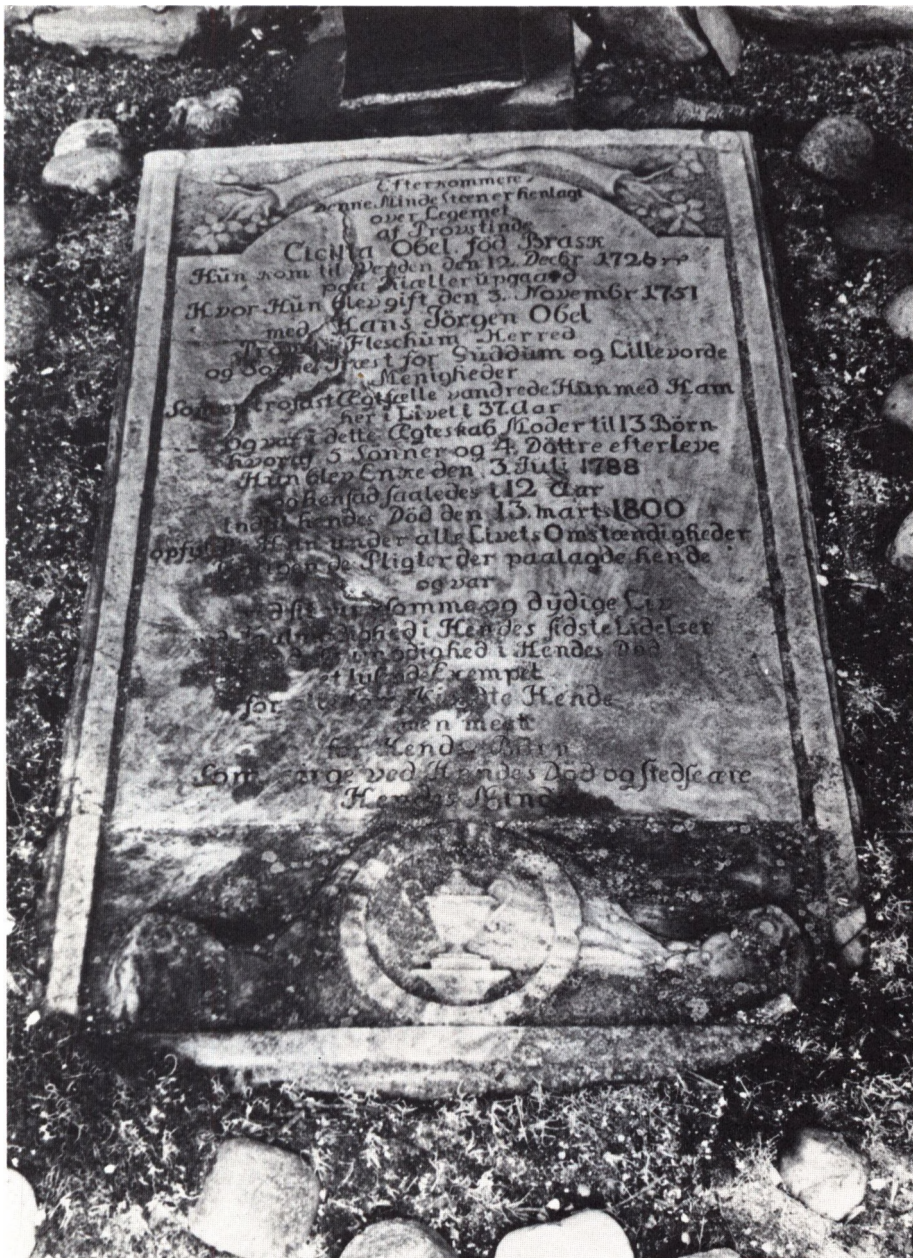 Efterkommere
denne Minde Steen er henlagt
over Legemet
af Provstinde
Cicilia Obel föd Brask
Hün kom til Verden den 12. Decbr 1726
paa Kiællerüpgaard
Hvor Hün blev gift den 3. Novembr 1751
med Hans Jörgen Obel
Provst i Fleschum Herred
og Sogne Præst for Güddüm og Lillevorde
Menigheder
Som en trofast Ægtfælle vandrede Hün med Ham
her i Livet i 37 Aar
og var i dette Ægteskab Moder til 13 Börn
hvoraf 5 Sönner og 4 Döttre efterleve
Hün blev Enke den 3. Juli 1788
og hensad saaledes i 12 Aar
indtil hendes Död den 13. marts 1800
opfyldte Hün under alle Livets Omstændigheder
de Pligter der paalagde hende
og var
og dÿdige Liv
i Hendes sidste Lidelser
i Hendes Död
et lysende Exempel
for Hende
men meest
for Hendes Börn
Som sørge ved Hendes Död og stedse ære
Hendes Minde